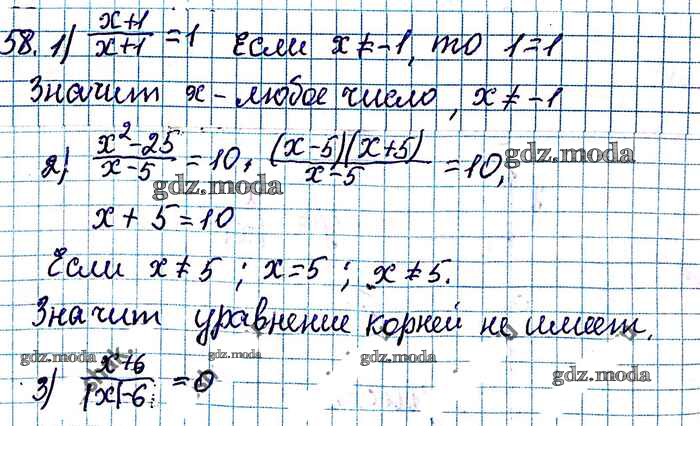 58. 1) (x+1)/(x+1) = 1 Если x ≠ -1, то 1=1
Значит x - любое число, x ≠ -1
2) (x²-25)/(x-5) = 10, ((x-5)(x+5))/(x-5) = 10,
gdz.moda gdz.moda
x + 5 = 10
Если x ≠ 5 ; x = 5 ; x ≠ 5.
Значит уравнение корней не имеет.
gdz.moda gdz.moda gdz.moda gdz.moda
3) (x+6)/(|x|-6) = 0
gdz.moda